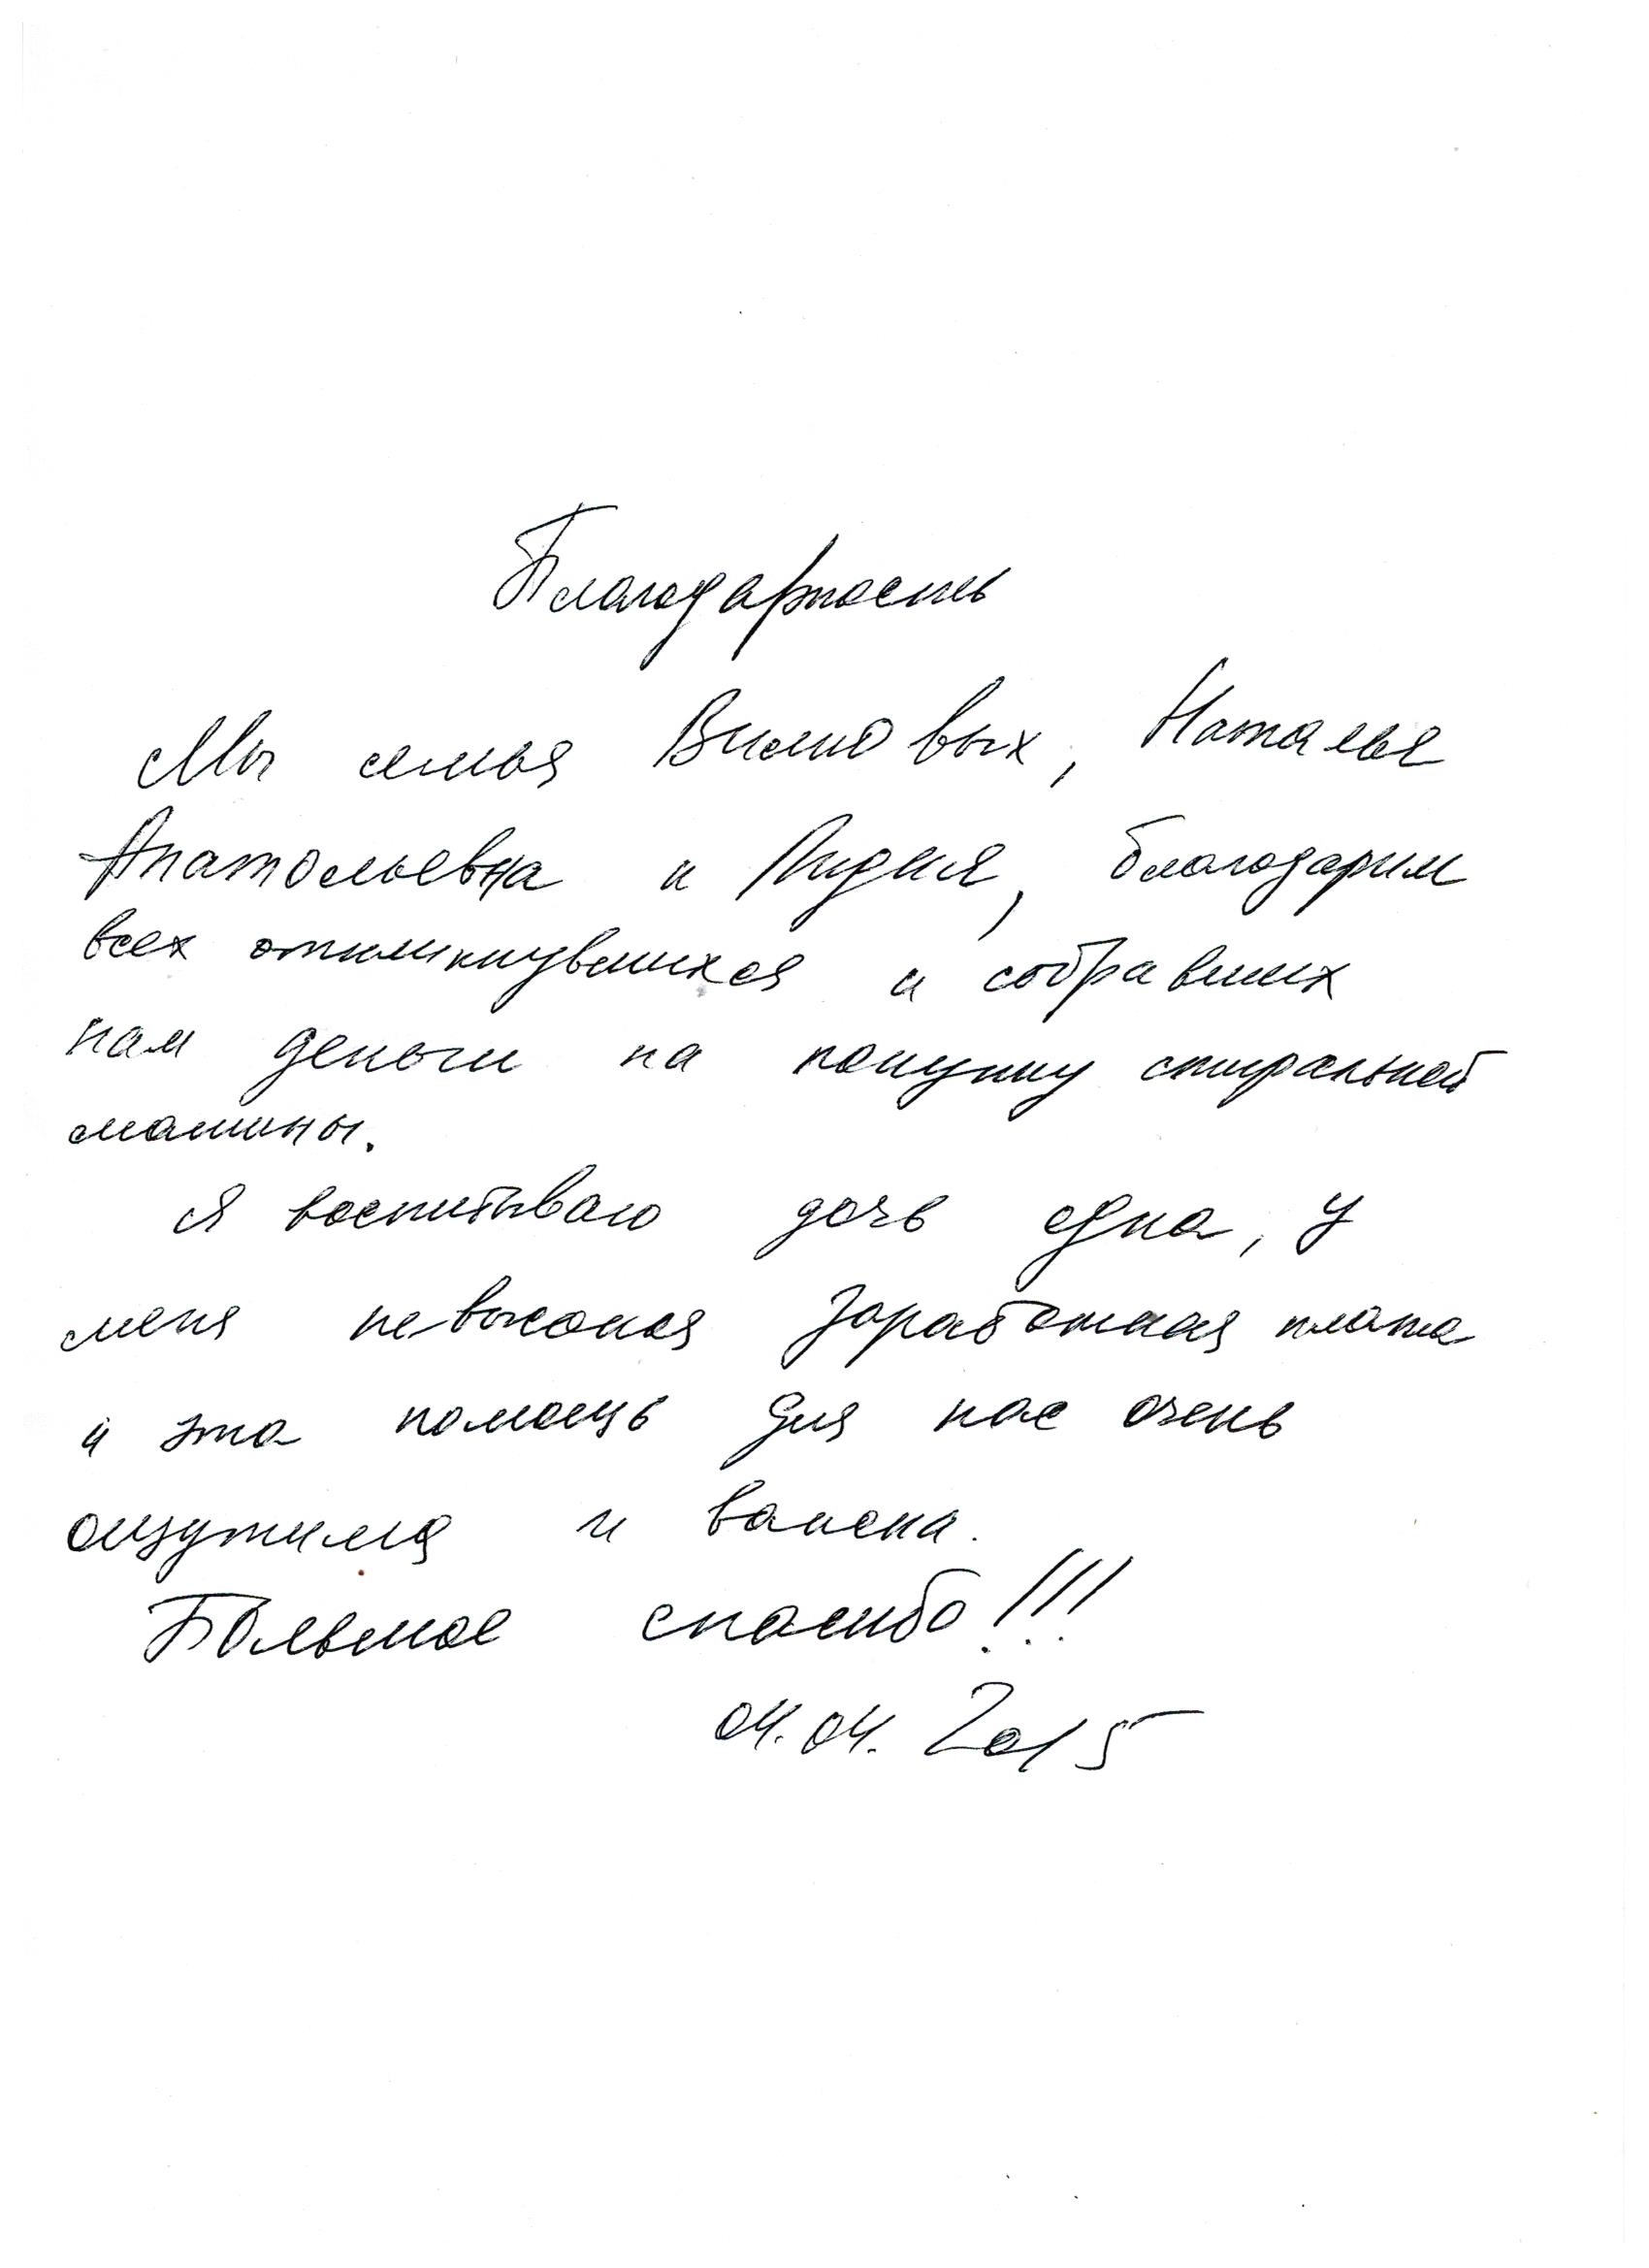 Благодарность
Мы семья Висловых, Наталья
Анатольевна и Лидия, благодарим
всех откликнувшихся и собравших
нам деньги на покупку стиральной
машины.
Я воспитываю дочь одна, у
меня невысокая заработная плата
и эта помощь для нас очень
ощутима и важна.
Большое спасибо!!!
04.04.2015